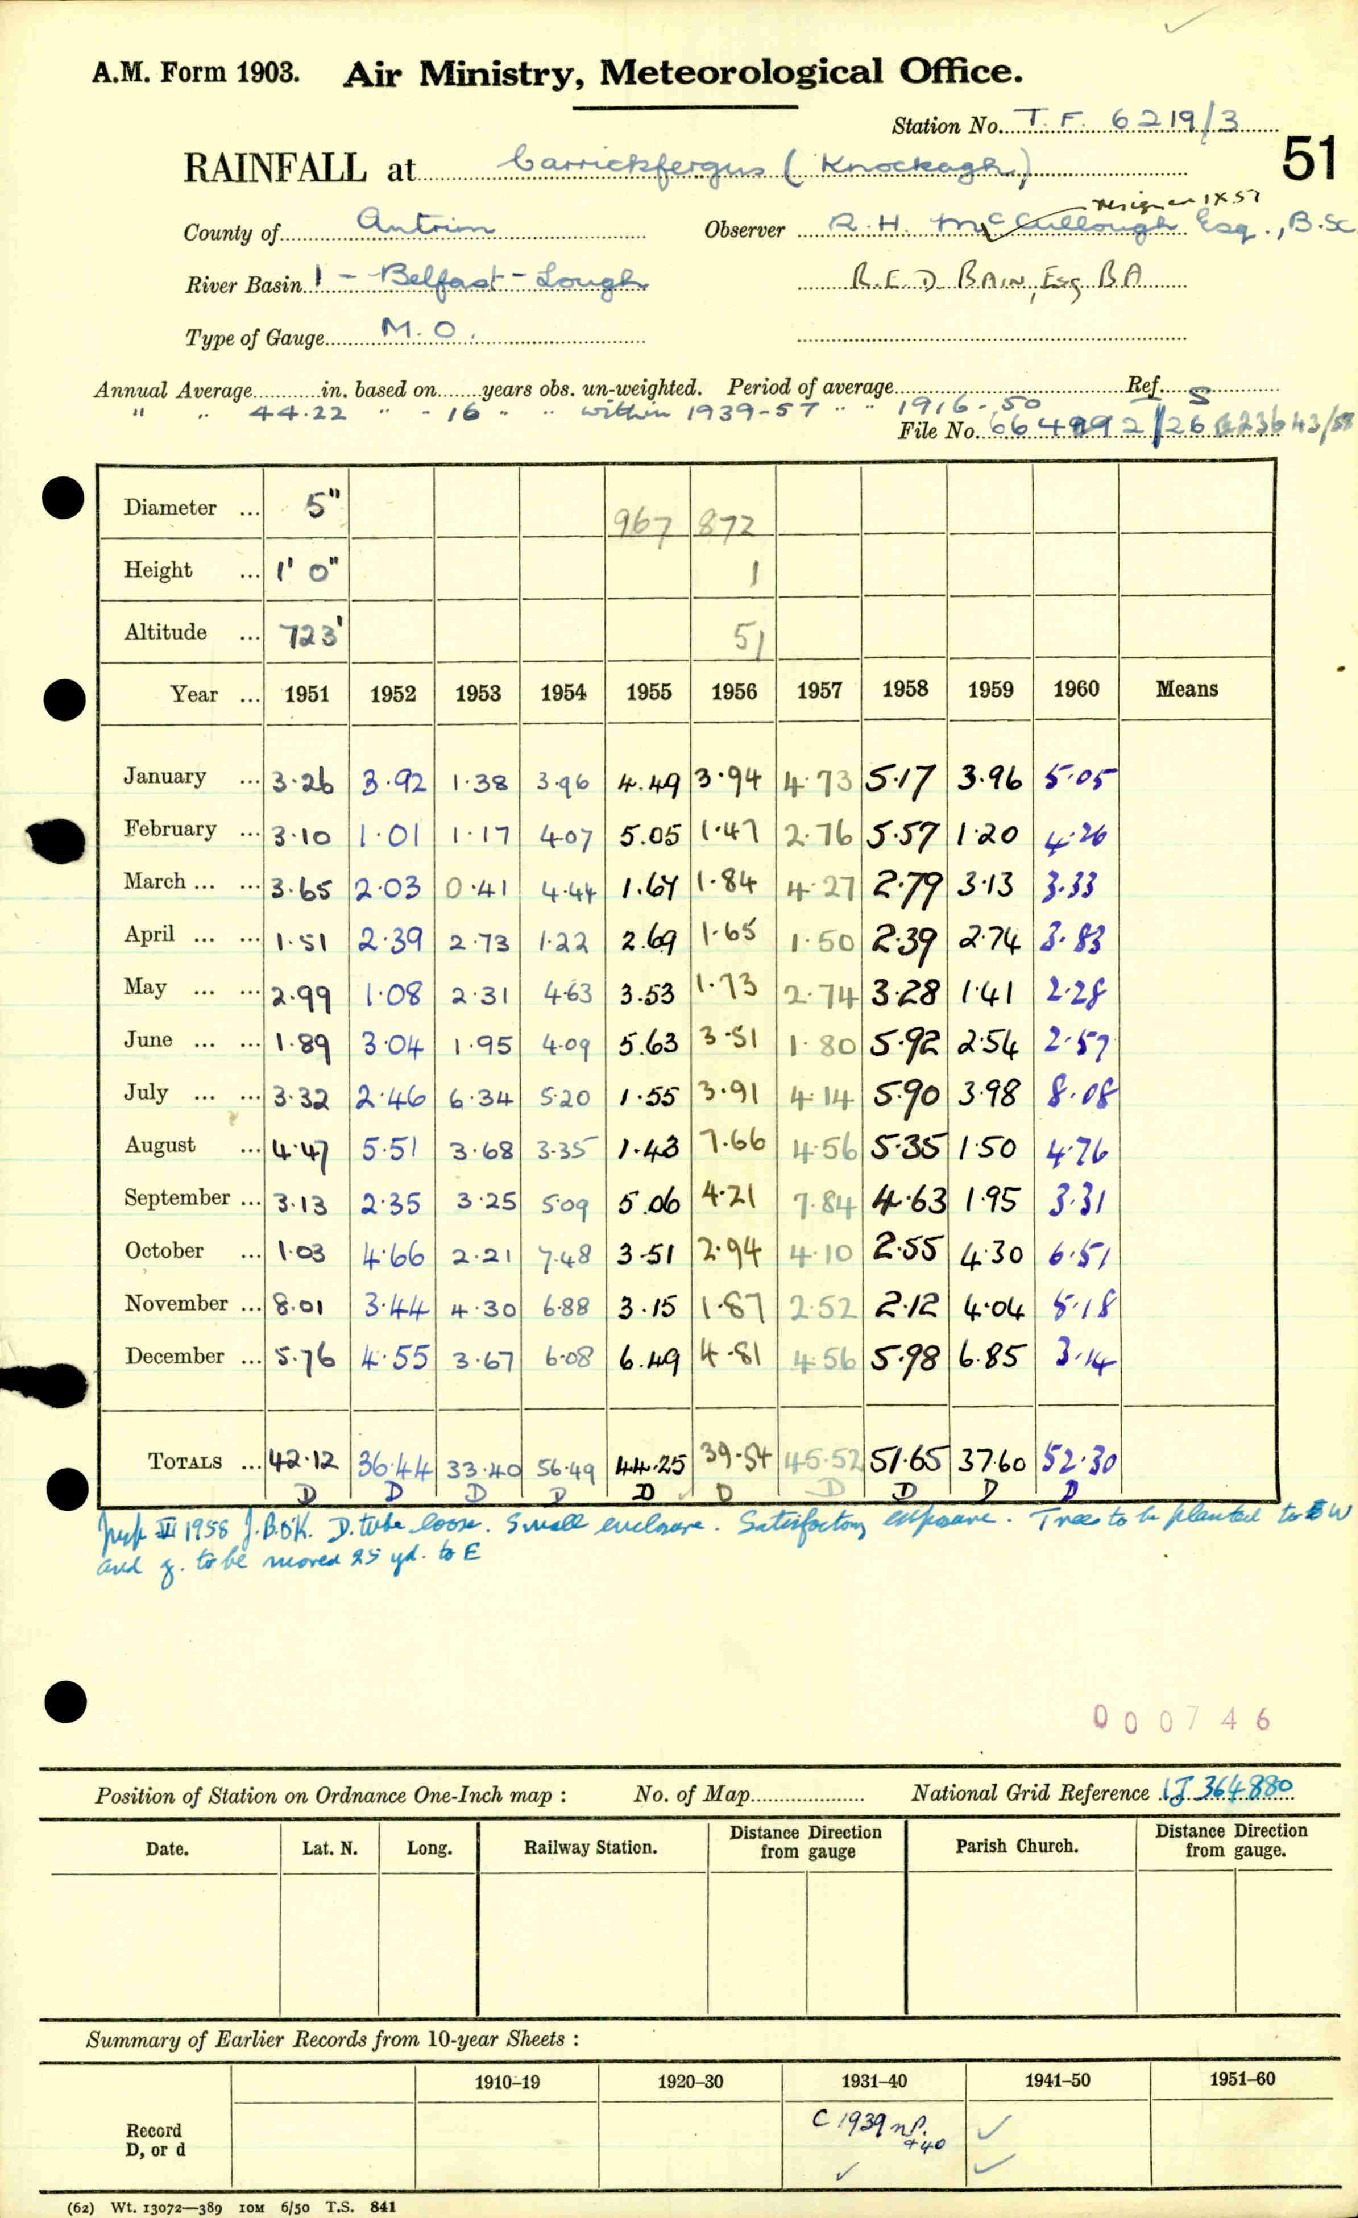 A.M. Form 1903. Air Ministry, Meteorological Office.
Station No. T.F. 6219/3
51
RAINFALL at Carrickfergus (Knockagh)
resigned IX 57
County of Antrim Observer R.H. McCullough Esq., B.Sc
River Basin 1 - Belfast - Lough R.E.D. BAIN, Esq BA
Type of Gauge M.O.
Annual Average in. based on years obs. un-weighted. Period of average Ref. S
" " 44.22 " - 16 " " within 1939-57 " " 1916-50
File No.
Diameter ... 5" 967 872
Height ... 1' 0" 1
Altitude ... 723' 51
Year ... 1951 1952 1953 1954 1955 1956 1957 1958 1959 1960 Means
January ... 3.26 3.92 1.38 3.96 4.49 3.94 4.73 5.17 3.96 5.05
February ... 3.10 1.01 1.17 4.07 5.05 1.47 2.76 5.57 1.20 4.26
March ... ... 3.65 2.03 0.41 4.44 1.67 1.84 4.27 2.79 3.13 3.33
April ... ... 1.51 2.39 2.73 1.22 2.69 1.65 1.50 2.39 2.74 3.83
May ... ... 2.99 1.08 2.31 4.63 3.53 1.73 2.74 3.28 1.41 2.28
June ... ... 1.89 3.04 1.95 4.09 5.63 3.51 1.80 5.92 2.54 2.57
July ... ... 3.32 2.46 6.34 5.20 1.55 3.91 4.14 5.90 3.98 8.08
August ... 4.47 5.51 3.68 3.35 1.43 7.66 4.56 5.35 1.50 4.76
September ... 3.13 2.35 3.25 5.09 5.06 4.21 7.84 4.63 1.95 3.31
October ... 1.03 4.66 2.21 7.48 3.51 2.94 4.10 2.55 4.30 6.51
November ... 8.01 3.44 4.30 6.88 3.15 1.87 2.52 2.12 4.04 5.18
December ... 5.76 4.55 3.67 6.08 6.49 4.81 4.56 5.98 6.85 3.14
TOTALS ... 42.12 36.44 33.40 56.49 44.25 39.54 45.52 51.65 37.60 52.30
D D D D D D D D D D
1958 J.B.O'K. D. tube loose. Small enclosure. Satisfactory exposure. Trees to be planted to W
and g. to be moved 25 yd. to E
000746
Position of Station on Ordnance One-Inch map : No. of Map National Grid Reference IJ 364880
Date. Lat. N. Long. Railway Station. Distance from gauge Direction Parish Church. Distance from gauge. Direction
Summary of Earlier Records from 10-year Sheets :
1910-19 1920-30 1931-40 1941-50 1951-60
Record C 1939 n.p.
D, or d +40
(62) Wt. 13072—389 10M 6/50 T.S. 841